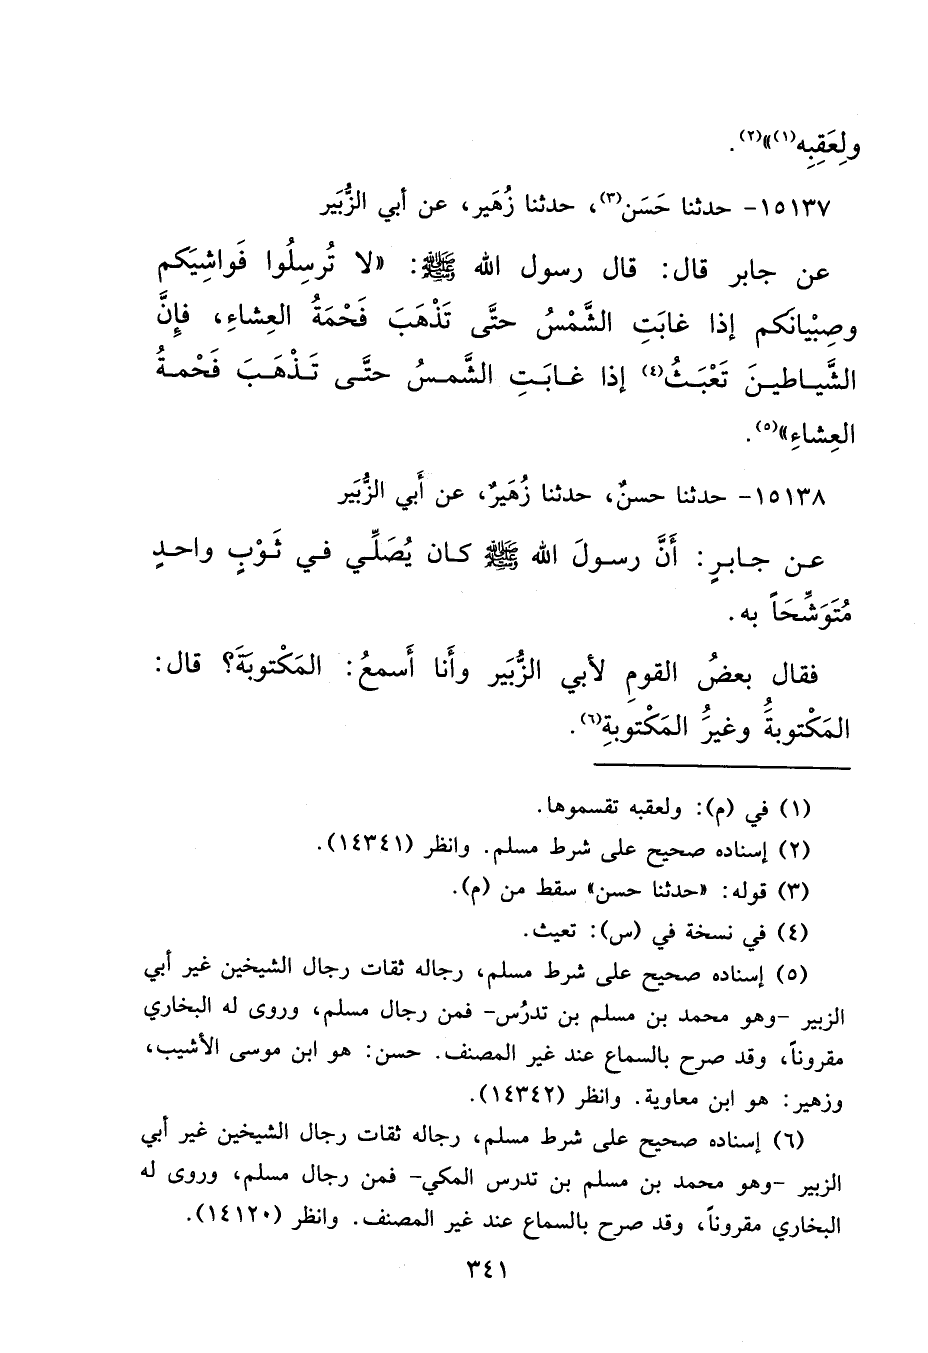 ولِعَقِبِه(١)»(٢).
١٥١٣٧- حدثنا حَسَن(٣)، حدثنا زُهَير، عن أبي الزُّبَير
عن جابر قال: قال رسول الله ﷺ: «لا تُرسِلُوا فَواشِيَكم
وصِبْيانَكم إذا غابَتِ الشَّمْسُ حتَّى تَذْهَبَ فَحْمَةُ العِشاءِ، فإِنَّ
الشَّياطينَ تَعْبَثُ(٤) إذا غابَتِ الشَّمسُ حتَّى تَذْهَبَ فَحْمةُ
العِشاءِ»(٥).
١٥١٣٨- حدثنا حسنٌ، حدثنا زُهَيرٌ، عن أَبي الزُّبَير
عن جابرٍ: أَنَّ رسولَ الله ﷺ كان يُصَلِّي في ثَوْبٍ واحدٍ
مُتَوَشِّحَاً به.
فقال بعضُ القومِ لأبي الزُّبَير وأَنا أَسمعُ: المَكْتوبَةَ؟ قال:
المَكْتوبةَُ وغيرَُ المَكْتوبةِ(٦).
(١) في (م): ولعقبه تقسموها.
(٢) إسناده صحيح على شرط مسلم. وانظر (١٤٣٤١).
(٣) قوله: «حدثنا حسن» سقط من (م).
(٤) في نسخة في (س): تعيث.
(٥) إسناده صحيح على شرط مسلم، رجاله ثقات رجال الشيخين غير أبي
الزبير -وهو محمد بن مسلم بن تدرُس- فمن رجال مسلم، وروى له البخاري
مقروناً، وقد صرح بالسماع عند غير المصنف. حسن: هو ابن موسى الأشيب،
وزهير: هو ابن معاوية. وانظر (١٤٣٤٢).
(٦) إسناده صحيح على شرط مسلم، رجاله ثقات رجال الشيخين غير أبي
الزبير -وهو محمد بن مسلم بن تدرس المكي- فمن رجال مسلم، وروى له
البخاري مقروناً، وقد صرح بالسماع عند غير المصنف. وانظر (١٤١٢٠).
٣٤١